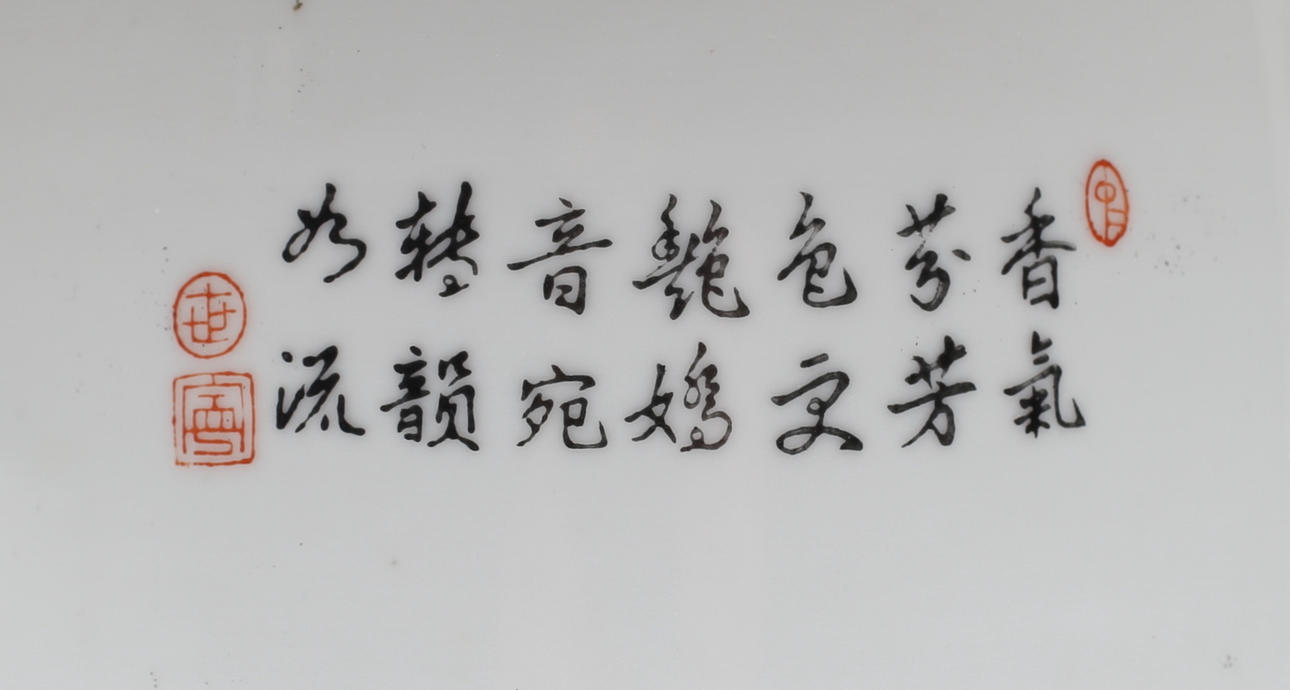 香氣
芬芳
色更
艷嬌
音宛
轉韻
如流
世
寧